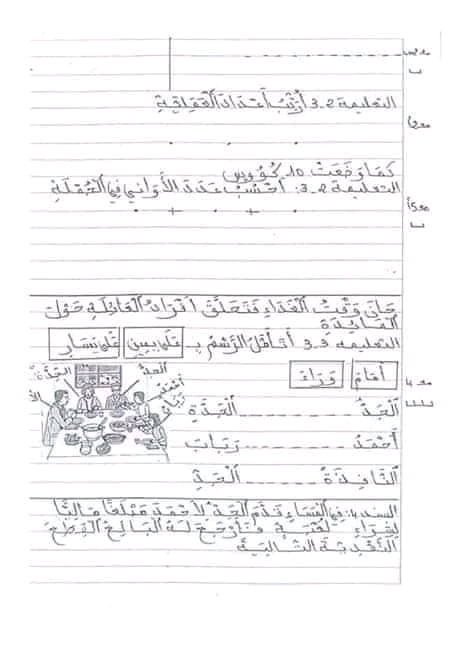 مع 2ب
التعليمة 2-3 أرتّب أعداد الفقاقيع
كما وضعت 10 كؤوس
التعليمة 2-3: أحسب عدد الأواني في الجملة
مع 5أ
حان وقت الغداء فتحلّق أفراد العائلة حول
المائدة
التعليمة 3-3 أتأمّل الرّسم بـ على يمين على يسار
أمام وراء
مع 4
الجدّ الجدّة أحمد رباب
الجدّ ............ الجدّة
أحمد ............ رباب
النّافذة ............ الجدّ
السند 4: في المساء قدّم الجدّ لأحمد مبلغا ماليّا
لشراء لعبة فأرجع له البائع القطع
النّقديّة التّالية